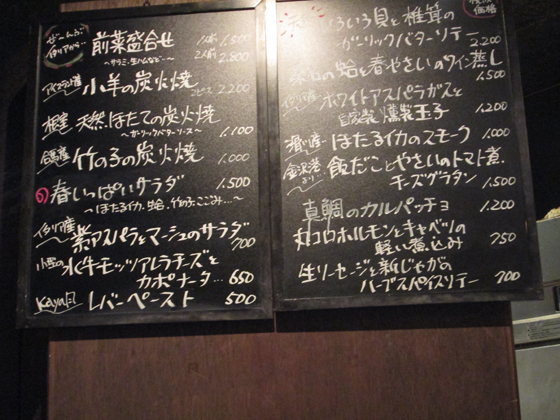 ぜーんぶ
イタリアから
前菜盛合せ
1人前 1.500
〜サラミ・生ハムなど〜
2人前 2.800
アイスランド産 小羊の炭火焼
2ピース 2.200
根室 天然ほたての炭火焼
〜ガーリックバターソース〜 1.100
合馬産 竹の子の炭火焼 1.000
春いっぱいサラダ 1.500
〜ほたるイカ、蛤、竹の子、こごみ…〜
イタリア産 紫アスパラとマーシュのサラダ
700
水牛モッツァレラチーズと
カポナータ… 650
Kaya風 レバーペースト 500
価格
いろいろ貝と椎茸の
ガーリックバターソテー
2.200
蛤と春やさいのワイン蒸し
1.500
ホワイトアスパラガスと
自家製 燻製玉子 1.200
ほたるイカのスモーク 1.000
金沢港より… 飯だことやさいのトマト煮
チーズグラタン 1.500
真鯛のカルパッチョ 1.200
丸コロホルモンとキャベツの
軽い煮込み 750
生ソーセージと新じゃがの
ハーブスパイスソテー 700